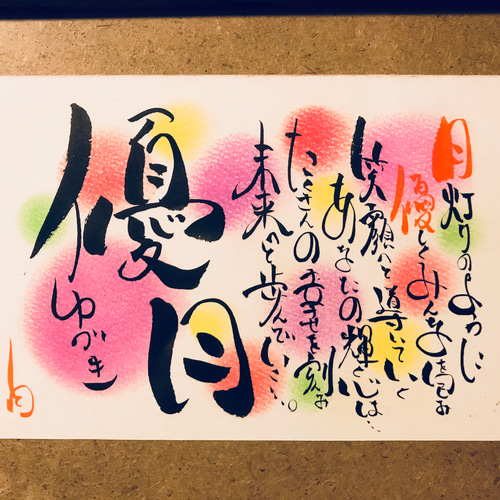 月灯りのように
優しくみんなを包み
笑顔へと導いていく
あなたの輝く心は…
たくさんの幸せを刻み
未来へと歩んでいく…。
優月
ゆづき